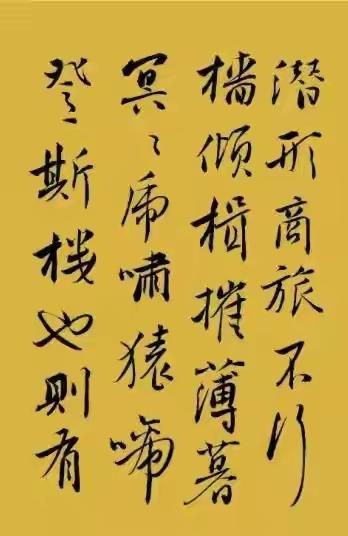 潜形商旅不行
樯倾楫摧薄暮
冥〻虎啸猿啼
登斯楼也则有